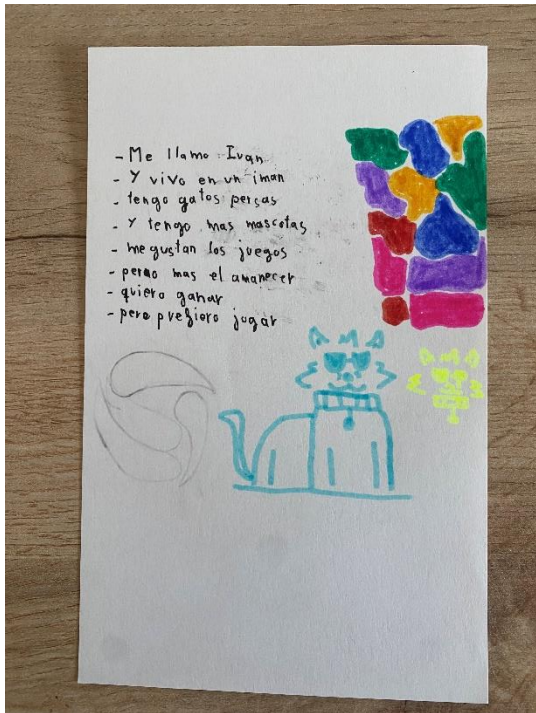 - Me llamo Ivan
- Y vivo en un iman
- tengo gatos persas
- Y tengo mas mascotas
- me gustan los juegos
- pero mas el amanecer
- quiero ganar
- pero prefiero jogar